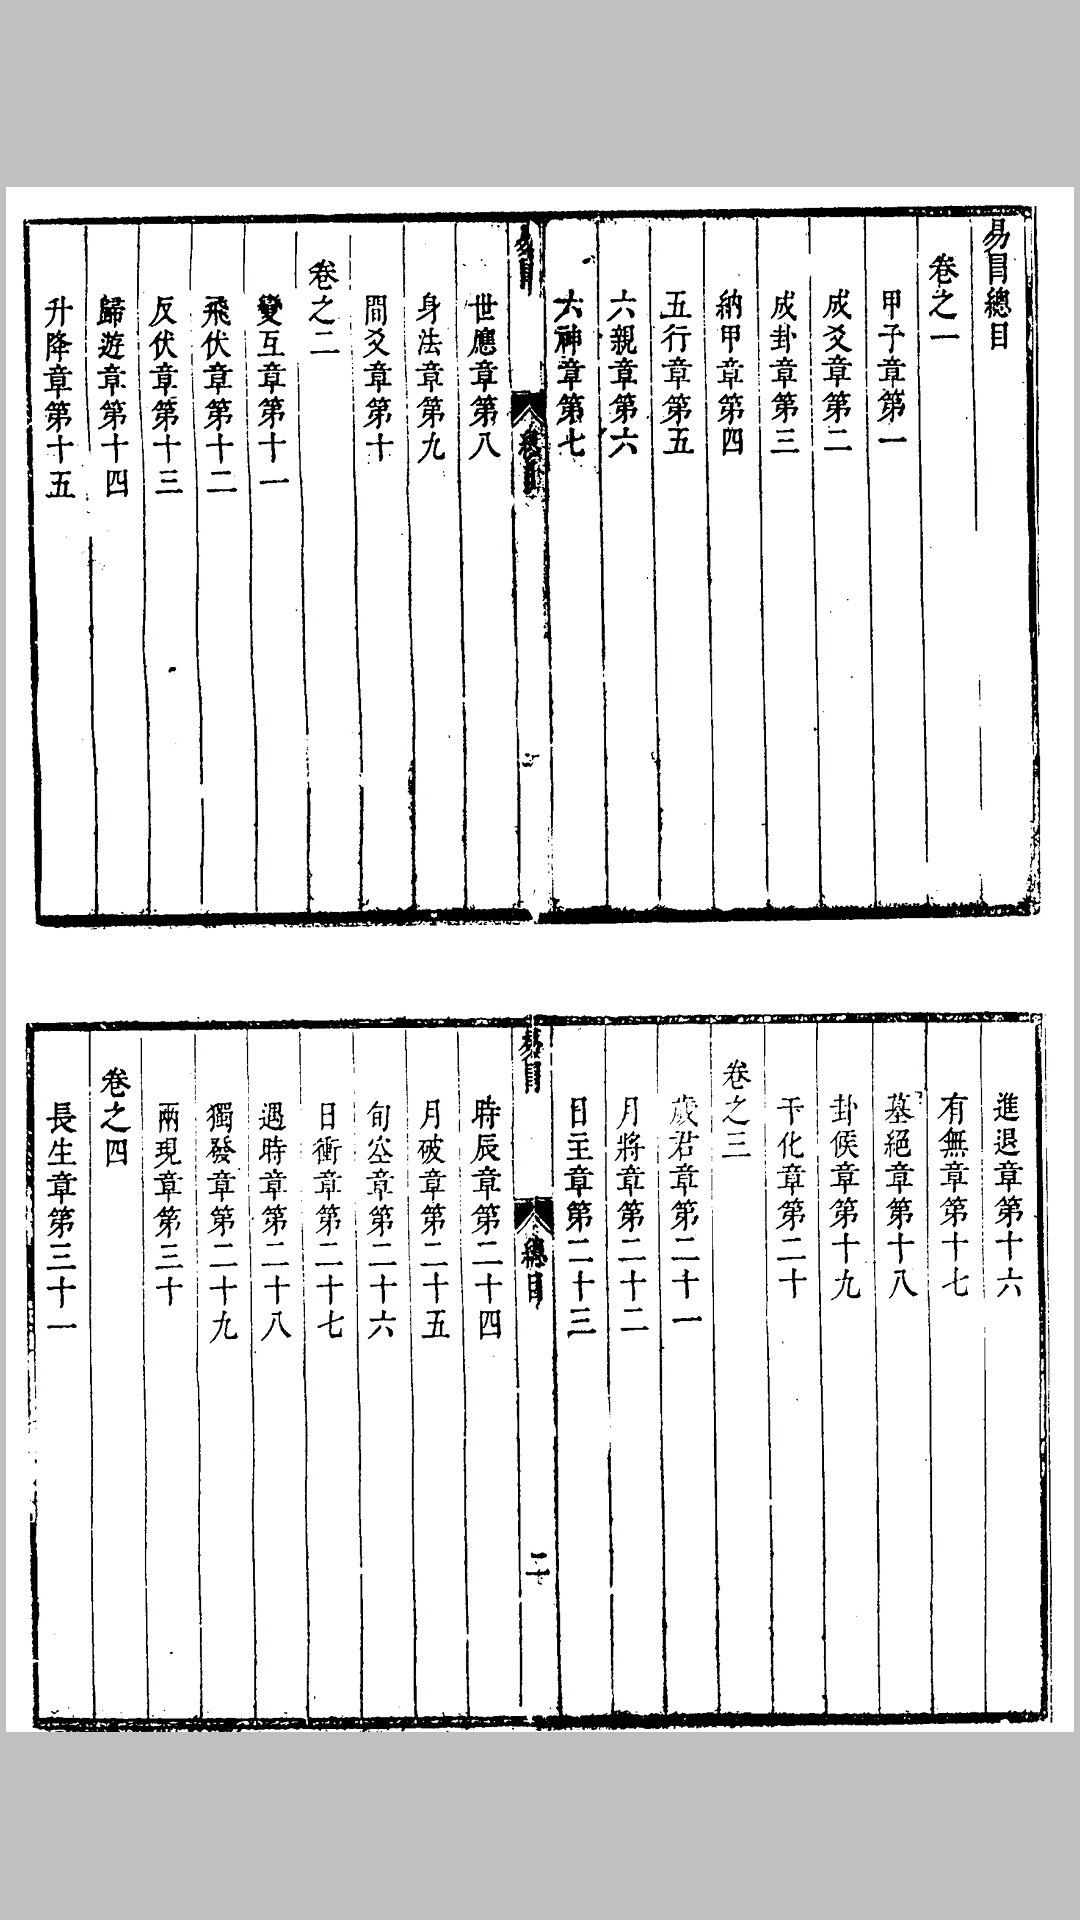 易冒總目
卷之一
甲子章第一
成爻章第二
成卦章第三
納甲章第四
五行章第五
六親章第六
六神章第七
易冒
總目
一
世應章第八
身法章第九
間爻章第十
卷之二
變互章第十一
飛伏章第十二
反伏章第十三
歸遊章第十四
升降章第十五
進退章第十六
有無章第十七
墓絕章第十八
卦候章第十九
干化章第二十
卷之三
歲君章第二十一
月將章第二十二
日主章第二十三
易冒
總目
二
時辰章第二十四
月破章第二十五
旬空章第二十六
日衝章第二十七
遇時章第二十八
獨發章第二十九
兩現章第三十
卷之四
長生章第三十一